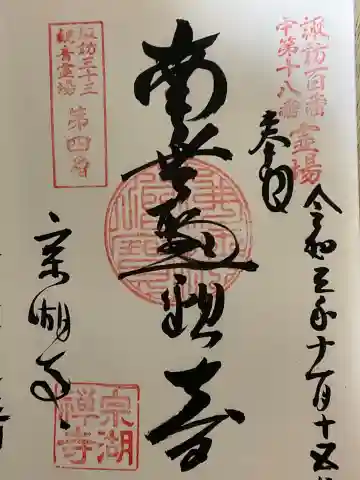 諏訪百番霊場
中第十八番
奉拝
令和三年十一月十五日
南無聖観音
諏訪三十三
観音霊場
第四番
宗湖寺
宗湖
禅寺